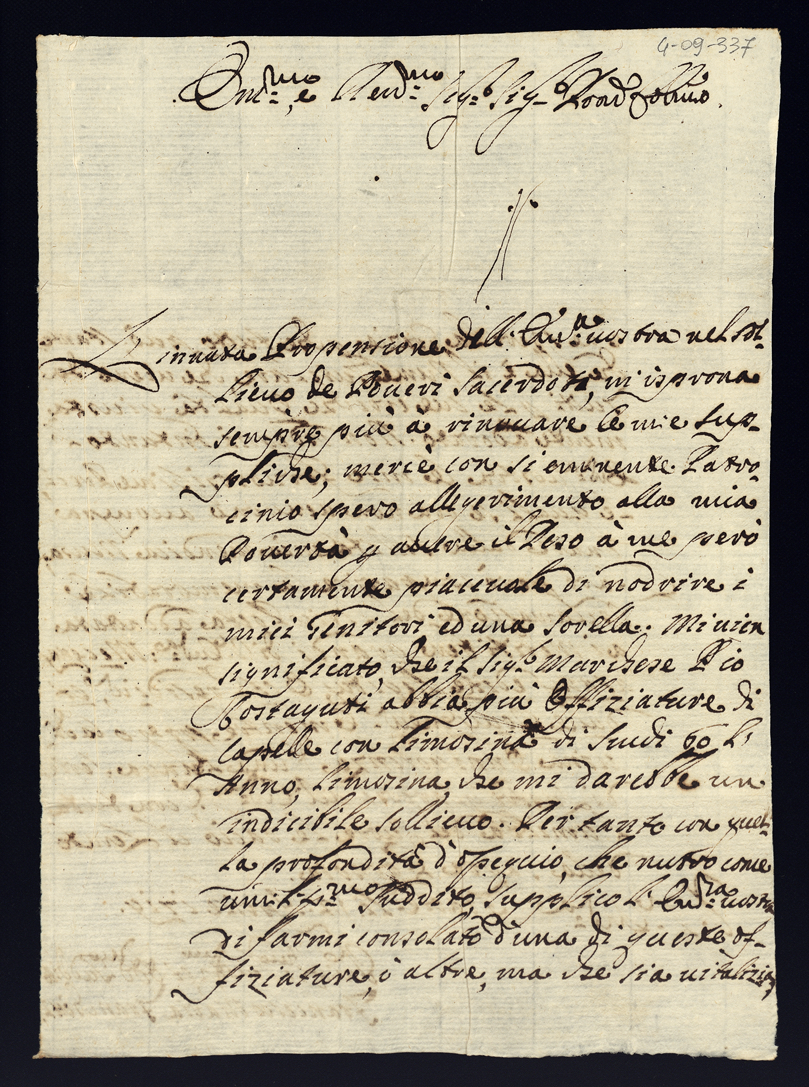 4-09-337
Em.mo e Rend.mo Sig.r Sig.r Pron
L'innata Propensione dell'Em.a vostra nel sol-
lievo de Poveri Sacerdoti, m'isprona
sempre più à rinovare le mie sup-
pliche; mercè con sì eminente Patro-
cinio spero allegerimento alla mia
Povertà p avere il Peso à me però
certamente piacevole di nodrire i
miei Genitori ed una sorella. Mi vien
significato, che il Sig.r Marchese Pio
Costaguti abbia più Offiziature di
Capelle con limosina di Scudi 60 l'
Anno, limosina, che mi darebbe un
indicibile sollievo. Per tanto con quel-
la profondità d'ossequio, che nutro come
umiliss.mo suddito, supplico l'Em.za vostra
di farmi consolato d'una di queste of-
fiziature, ò altre, ma che sia vitalizia,